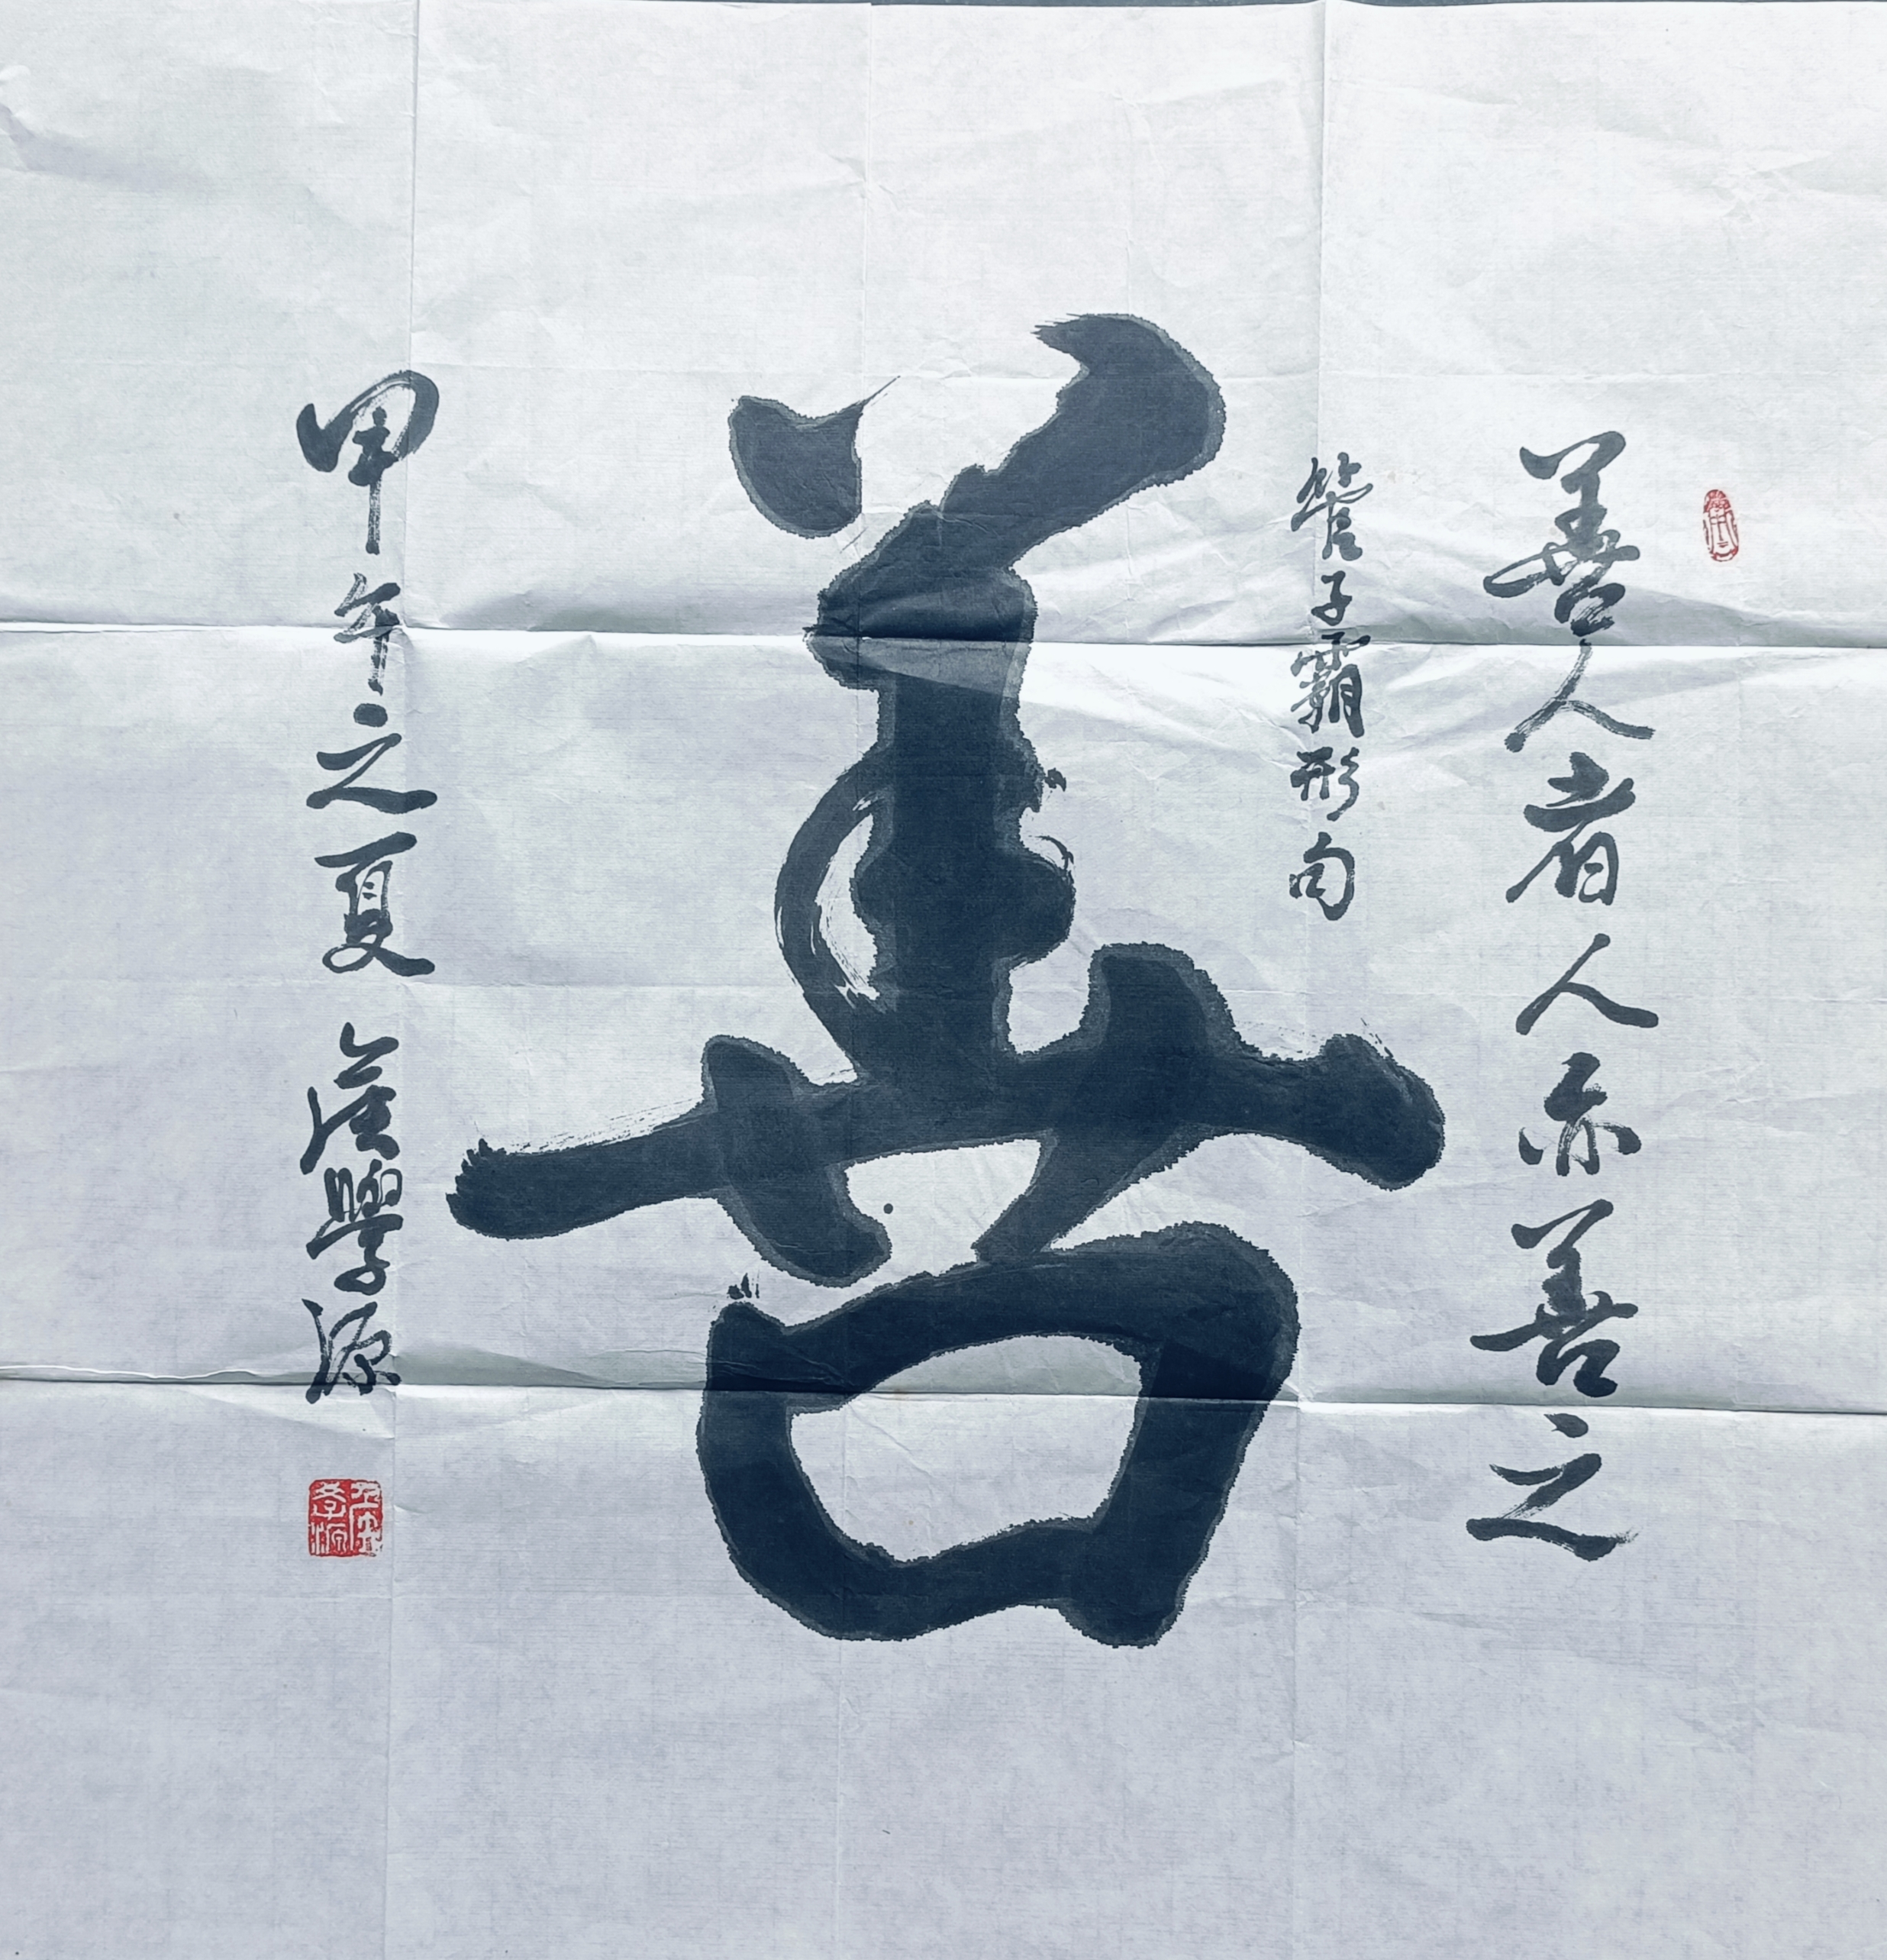 善人者人亦善之
管子霸形句
善
甲午之夏 學源